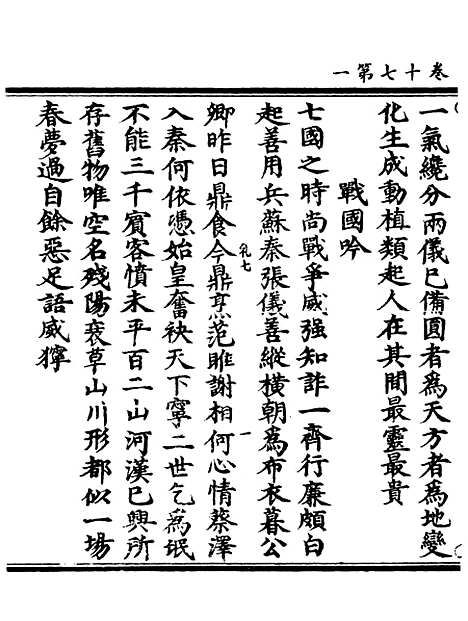 一第七十卷
一氣纔分兩儀已備圓者爲天方者爲地變
化生成動植類起人在其間最靈最貴
戰國吟
七國之時尚戰爭威强知詐一齊行廉頗白
起善用兵蘇秦張儀善縱橫朝爲布衣暮公
卿昨日鼎食今鼎烹范雎謝相何心情蔡澤
入秦何依憑始皇奮袂天下寧二世乞爲氓
不能三千賓客憤未平百二山河漢已興所
存舊物唯空名殘陽衰草山川形都似一場
春夢過自餘惡足語威獰